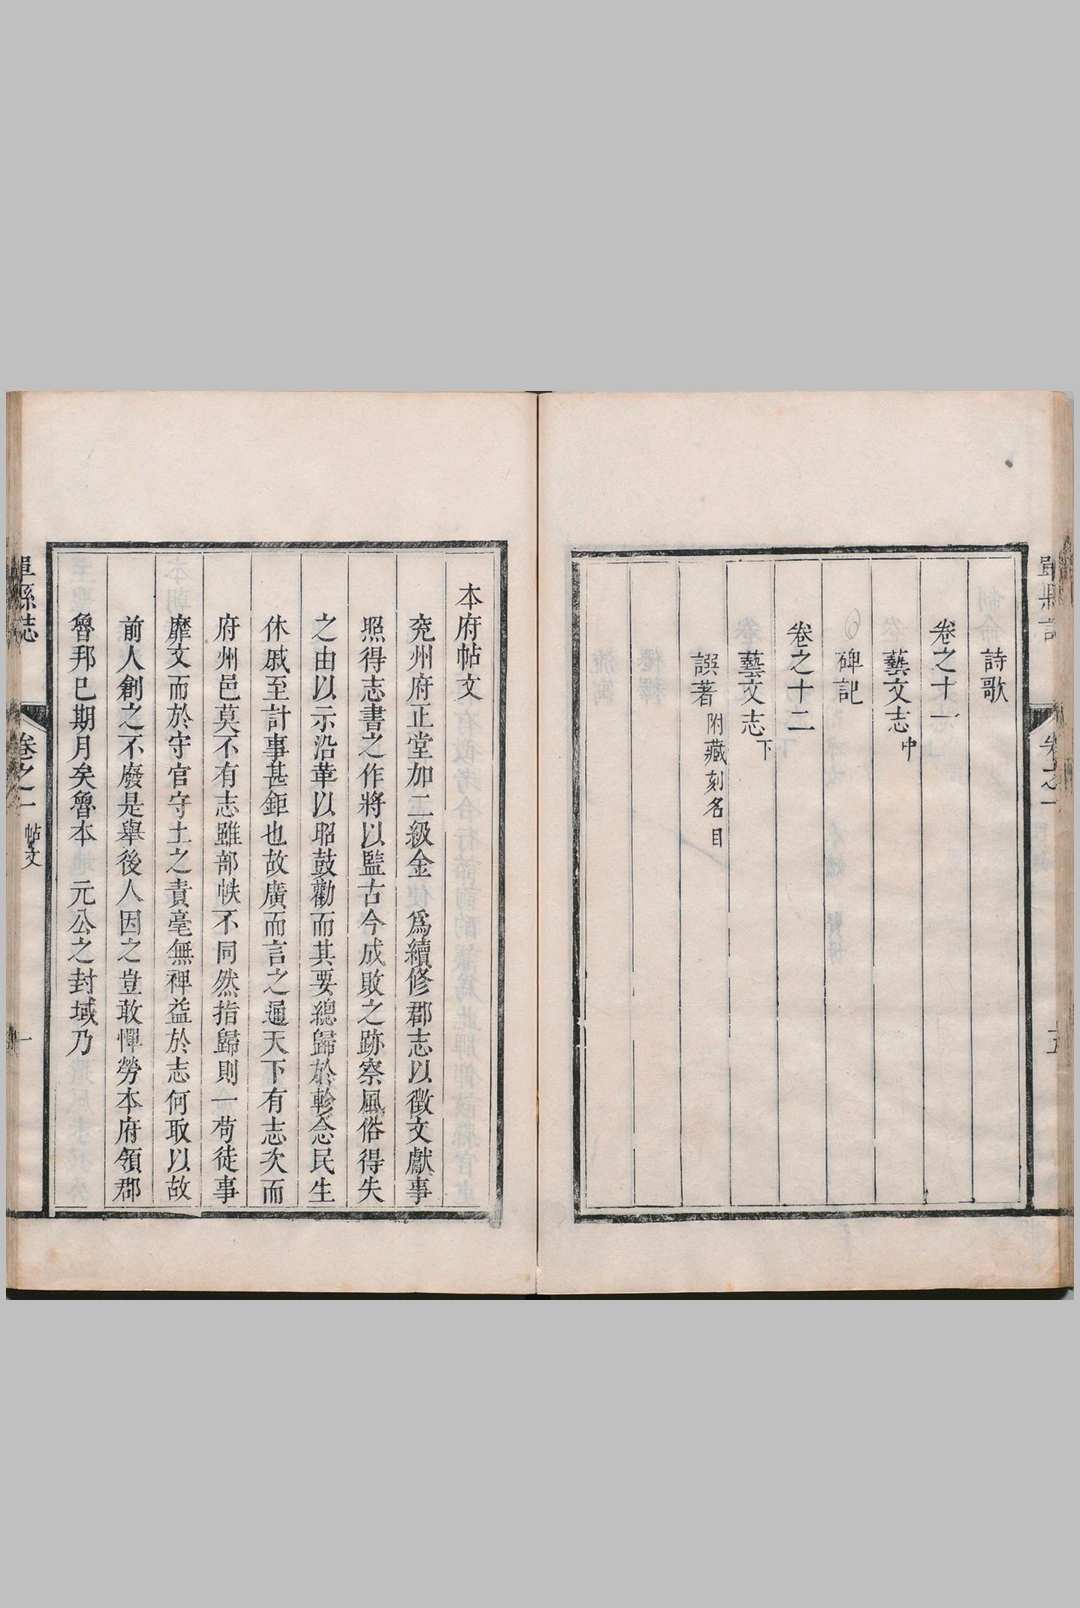 單縣誌
卷之一
詩歌
卷之十一
藝文志中
碑記
卷之十二
藝文志下
譔著附藏刻名目
本府帖文
兖州府正堂加二級金 爲續修郡志以徵文獻事
照得志書之作將以監古今成敗之跡察風俗得失
之由以示沿革以昭鼓勸而其要總歸於軫念民生
休戚至計事甚鉅也故廣而言之通天下有志次而
府州邑莫不有志雖部帙不同然指歸則一苟徒事
靡文而於守官守土之責毫無裨益於志何取以故
前人創之不廢是舉後人因之豈敢憚勞本府領郡
魯邦已期月矣魯本 元公之封域乃
單縣誌
卷之一
帖文
一